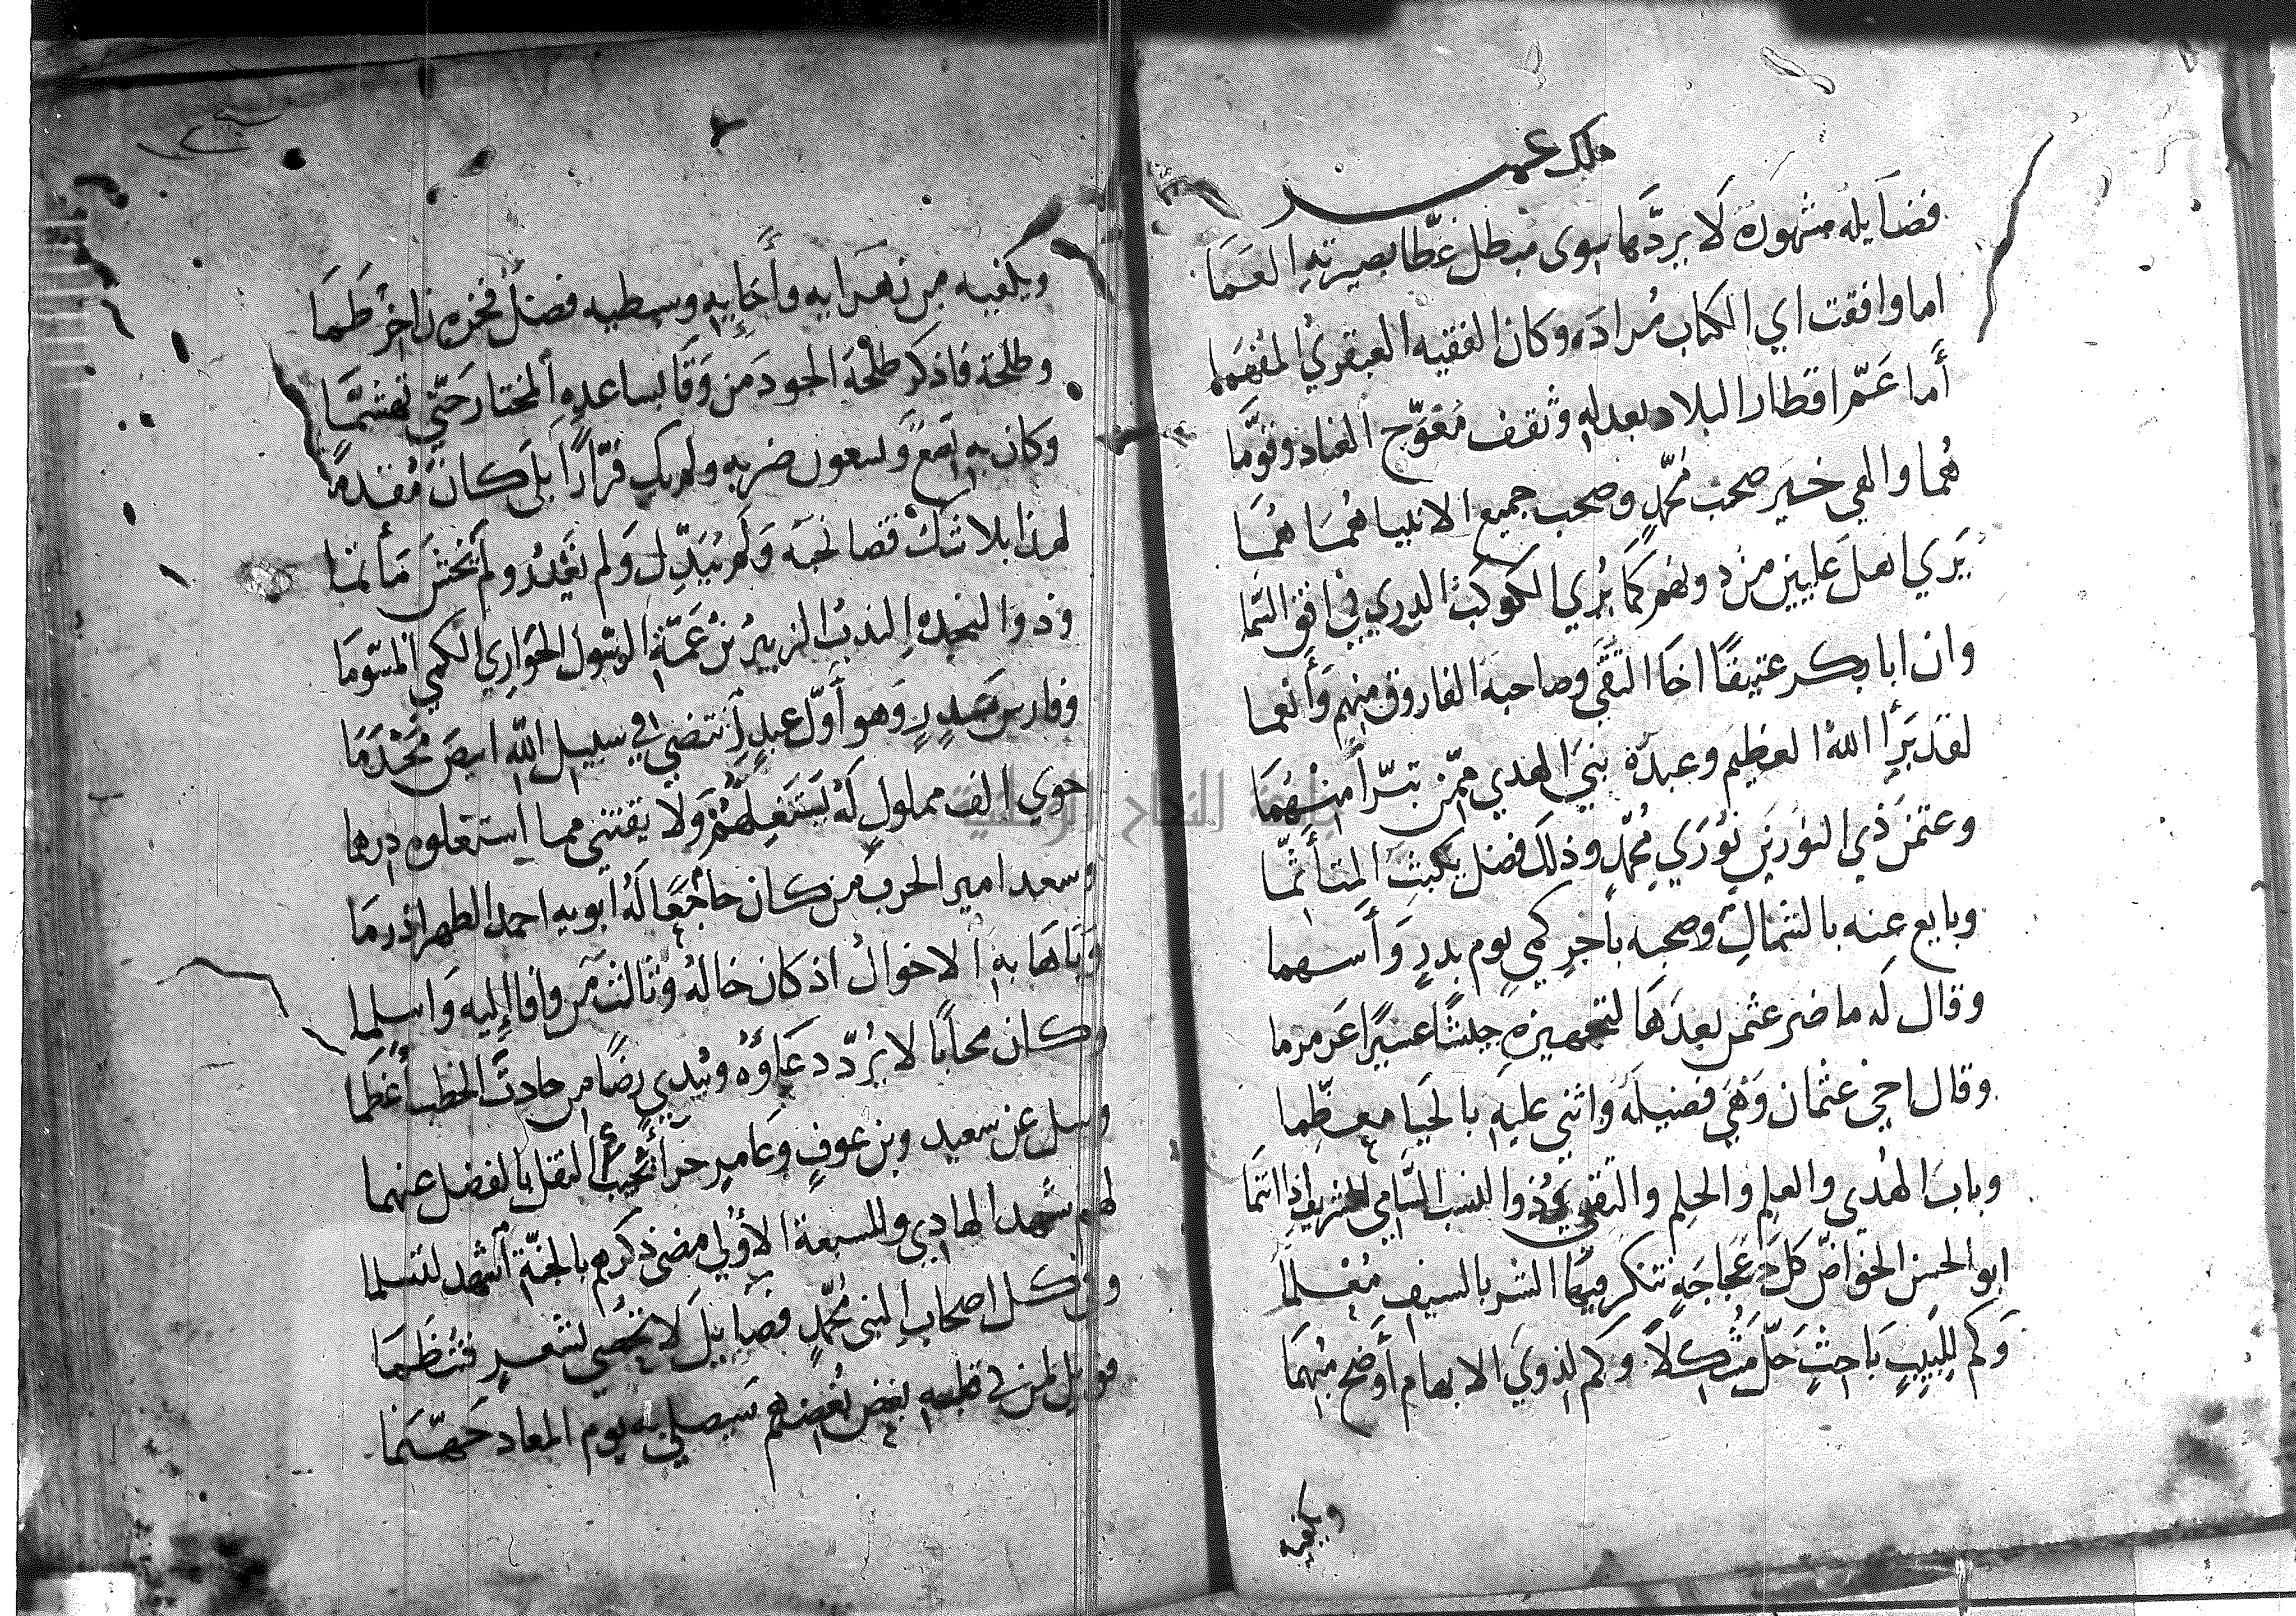 ملك عمر
فضايله مشهورة لا يردها سوى مبطل غطا بصيرته العما
اما وافقت اي الكتاب مراده وكان الفقيه العبقري المفهما
أما عمّر اقطار البلاد بعدله وثقف معوّج العناد وقوّما
هما والفي خير صحب محمّدٍ وصحب جميع الانبيا هما هما
يَري اهل عليين من دونهم كما يُري الكوكب الدري في افق السما
وان ابا بكر عتيقًا اخا التقَّي وصاحبه الفاروق منهم وأنعما
لقد بَرِأ اللهُ العظيم وعبدُهُ نبيّ الهدي ممّن تبرّأ منهما
وعثمن ذي النورين نُورَي محمّدٍ وذلك فضل يكبت المتأثّما
وبايع عنه بالشمال وصحبه بأجر كمي يوم بدرٍ وأسهما
وقال له ما ضر عثمن بعدها لتجهيزه جيشًا عسيرًا عرمرما
وقال احي عثمان وهي فضيلة واثني عليه بالحيا معظّما
وباب الهُدي والعلم والحلم والتقي ذوا النسب السّامي الشريف إذا انتما
ابو الحسن الخوّاض كل عجاجةٍ تنكر فيها الشر بالسيف معلما
وَكَم لِلَبِيبٍ بَاحِثٍ حَلّ مُشكلاً وكم لذوي الابهام أوضح مبهما
ويكفيه
ويكفيه من زهرايه وأخايه وسبطيه فضل فخره زاخر طَمَا
وطلحة فاذكر طلحة الجود من وَقَا بساعده المختار حَتّي تهشّما
وكان به بضع وسبعون ضربه ولم يك فرّارًا بلي كان مُقدمًا
لهذا بلا شك قضا نحبه ولم يبدّل ولم يغدر ولم يخش مأثما
وذوا النجده الندب الزبير بن عَمّة الرسول الحواري الكمي المسوّما
وفارس بدرٍ وهو أوّل عبدٍ انتضي في سبيل الله ابيض مخذما
حوي الف مملولٍ له يستغلهم ولا يقتني مما استغلوه درهما
وسعد امير الحرب من كان جامعًا له ابويه احمد الطهر اذ رما
وباها به الاخوال اذ كان خاله وثالث من وافا إليه واسلما
وكان مجابا لا يُردّ دعاؤه ويُبدي رضًا من حادث الخطب أعظما
وسل عن سعيد وبن عوفٍ وعامرٍ النقل بالفضل عنهما
لهم شهد الهادي والسبعة الأولي مضي ذكرهم بالجنّة اشهد لتسلما
وفي كل اصحاب النبي محمّدٍ فضايل لا تحصي لشعر فتنظما
فويل لمن في قلبه بعض بُغضهم سيصلي به يوم المعاد جهنّما
جامعة النجاح الوطنية